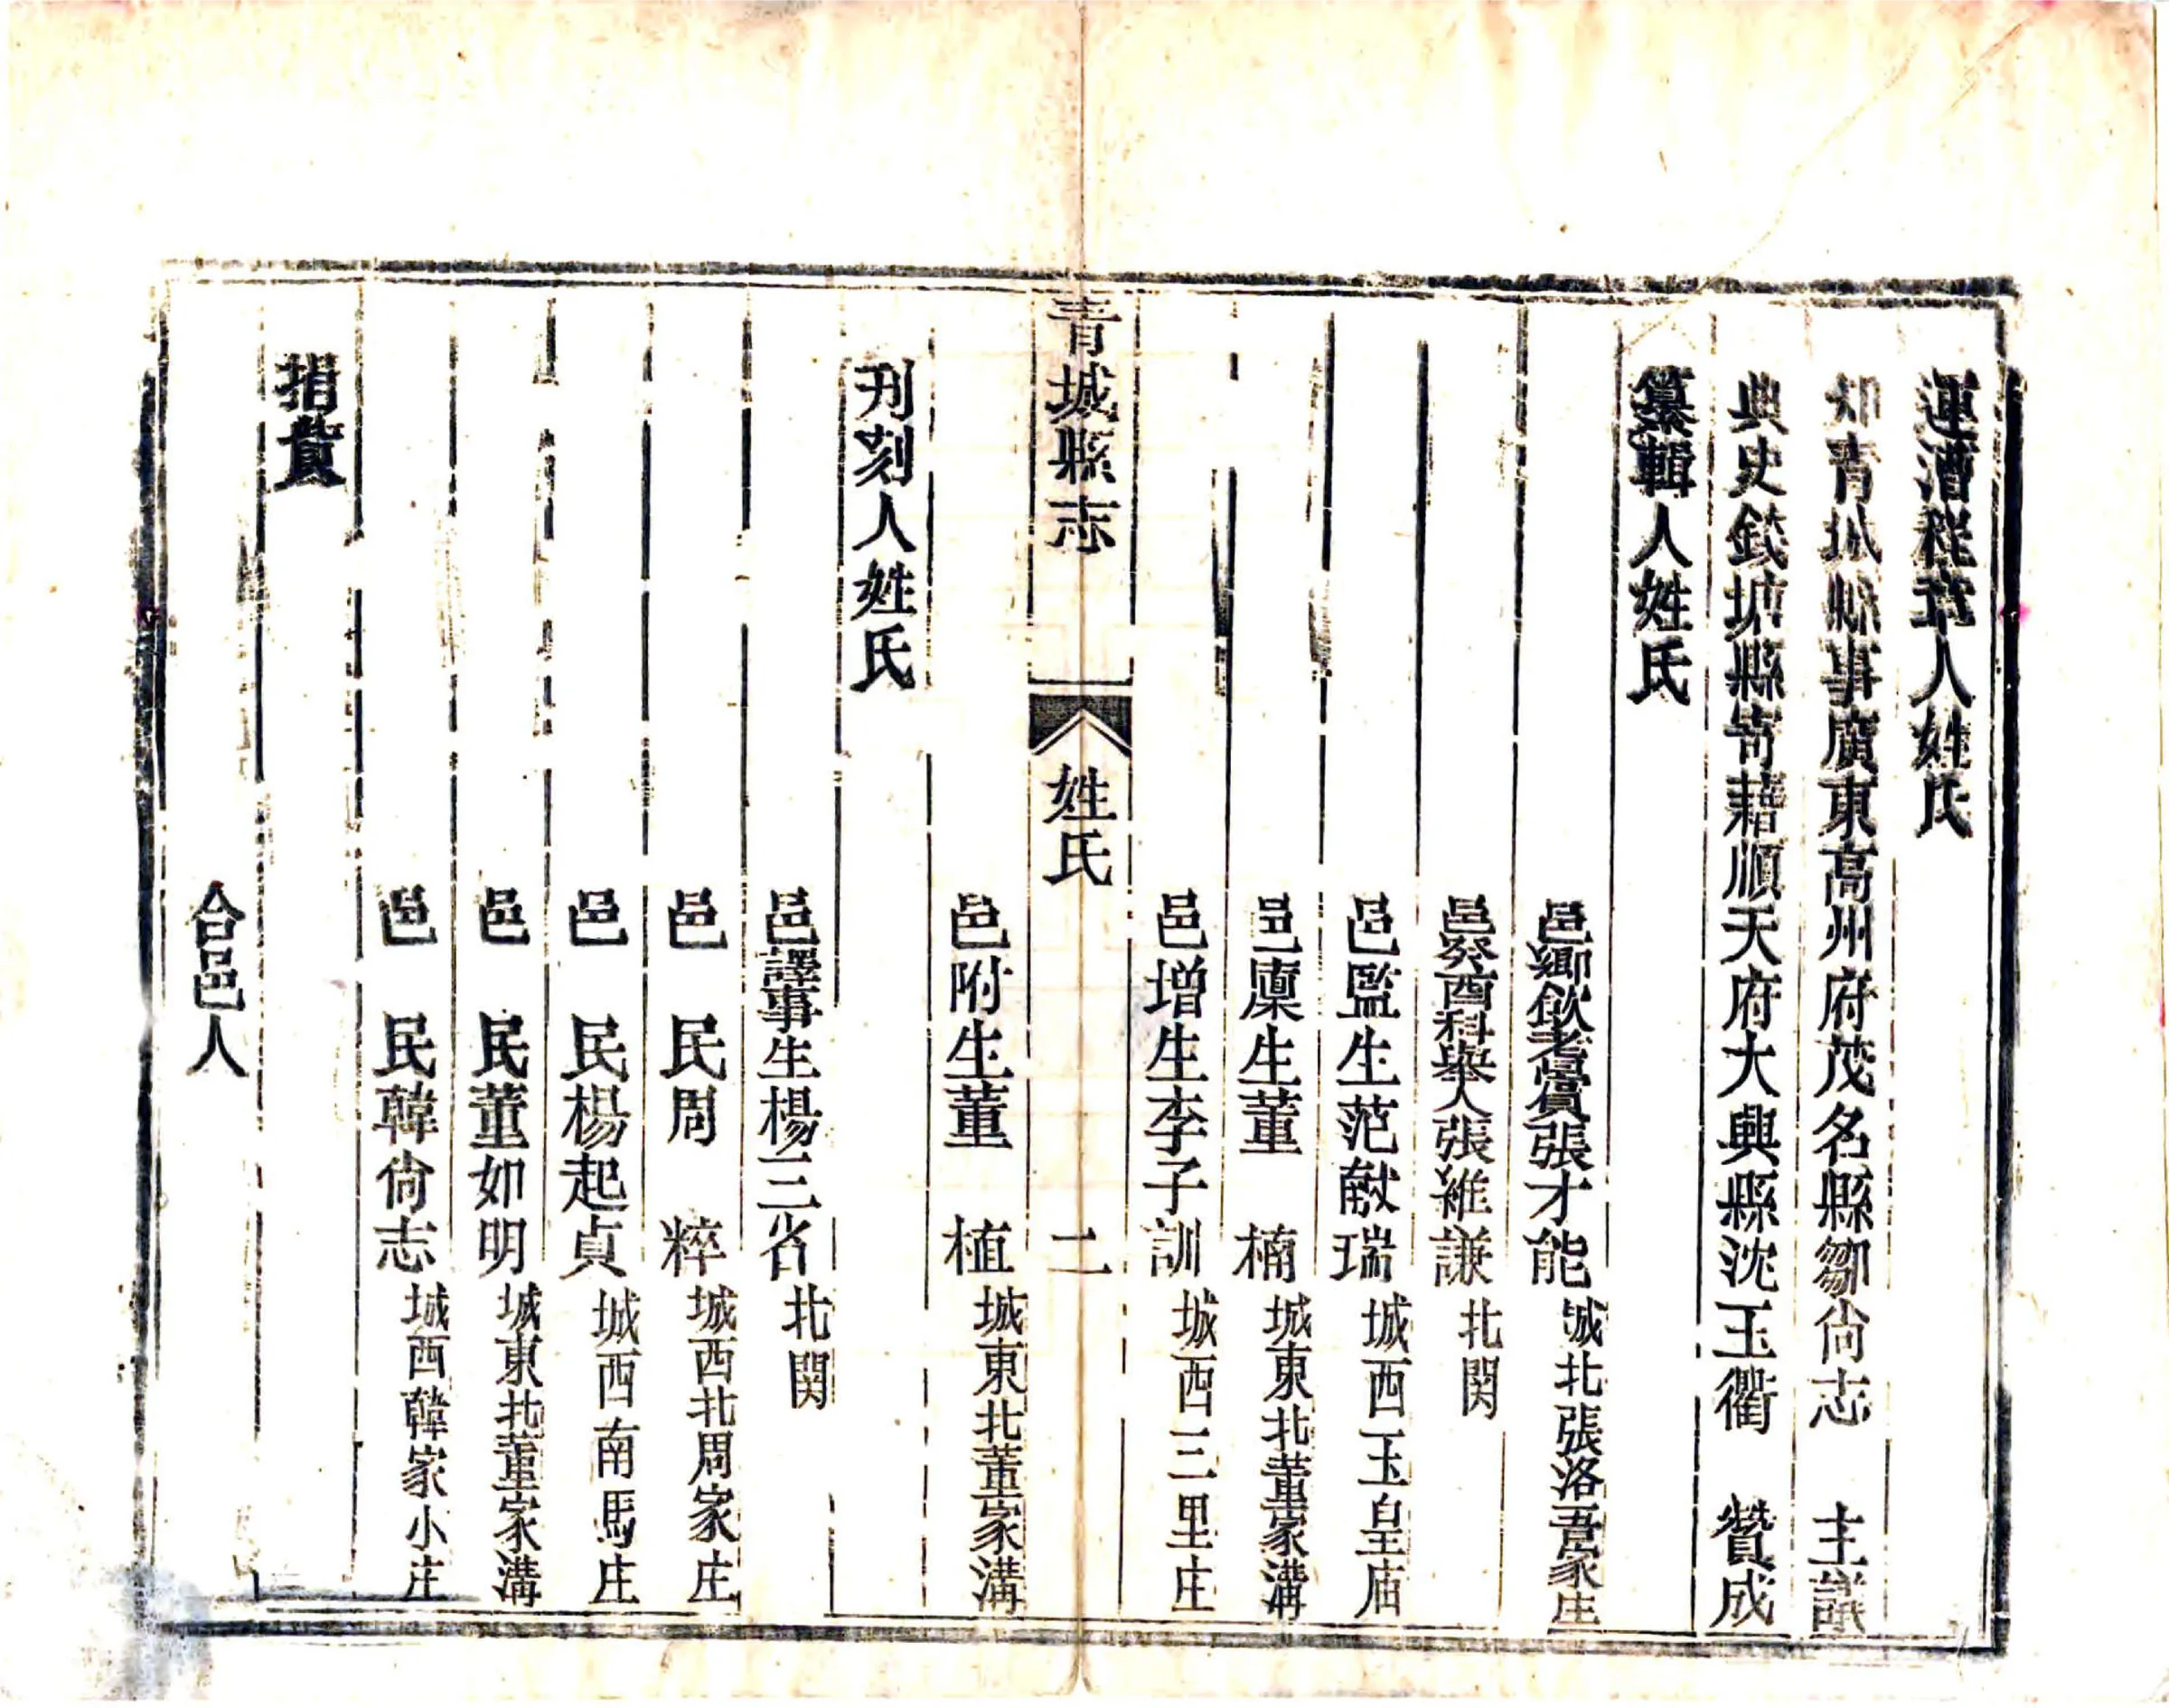 運漕程章人姓氏
知青城縣事廣東高州府茂名縣鄒尙志 主議
典史錢塘縣寄藉順天府大興縣沈玉衢 贊成
纂輯人姓氏
邑鄉飮耆賓張才能 城北張洛吾家庄
邑癸酉科舉人張維謙 北関
邑監生范献瑞 城西玉皇庙
邑廩生董 楠 城東北董家溝
邑增生李子訓 城西三里庄
青城縣志 姓氏 二
邑附生董 植 城東北董家溝
刋刻人姓氏
邑譯事生楊三省 北関
邑 民周 粹 城西北周家庄
邑 民楊起貞 城西南馬庄
邑 民董如明 城東北董家溝
邑 民韓尙志 城西韓家小庄
捐貲
合邑人